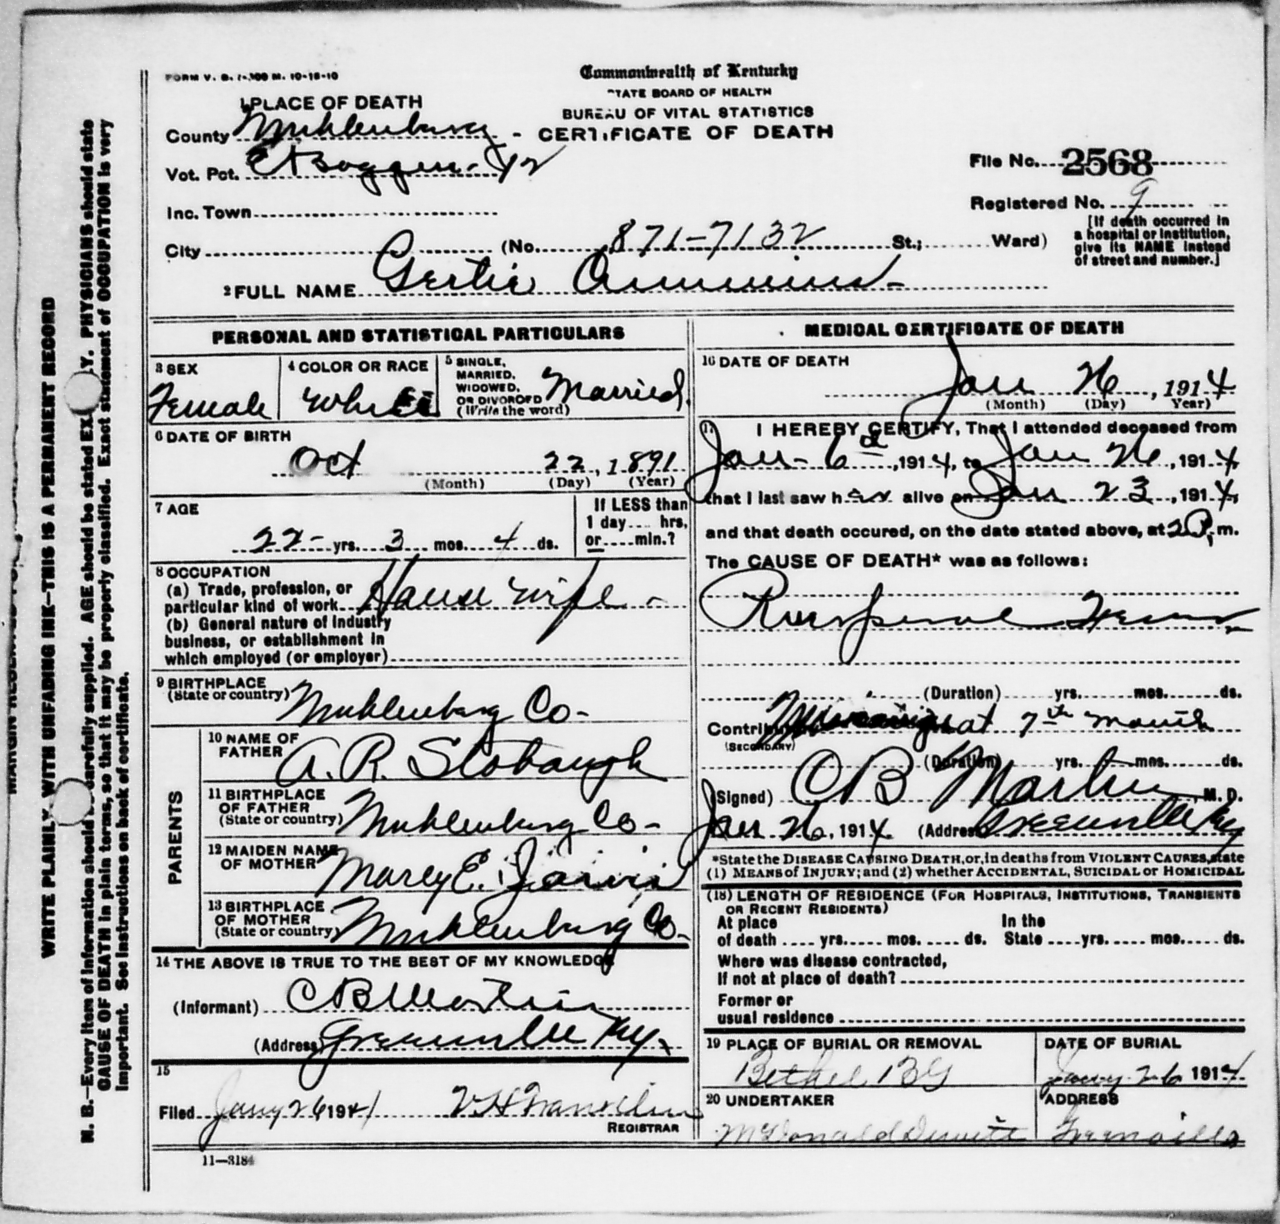 FORM V. S. 1-300 M. 10-18-10
Commonwealth of Kentucky
STATE BOARD OF HEALTH
BUREAU OF VITAL STATISTICS
CERTIFICATE OF DEATH
1 PLACE OF DEATH
County Muhlenburg
Vot. Pct. 42
Inc. Town
City (No. 871-7132 St.; Ward)
File No. 2568
Registered No. 9
[If death occurred in
a hospital or institution,
give its NAME instead
of street and number.]
2 FULL NAME Gertie
PERSONAL AND STATISTICAL PARTICULARS
3 SEX
Female
4 COLOR OR RACE
White
5 SINGLE,
MARRIED,
WIDOWED,
OR DIVORCED
(Write the word)
Married
6 DATE OF BIRTH
Oct 22, 1891
(Month) (Day) (Year)
7 AGE
22 yrs. 3 mos. 4 ds.
If LESS than
1 day.... hrs,
or.....min.?
8 OCCUPATION
(a) Trade, profession, or
particular kind of work House wife
(b) General nature of industry
business, or establishment in
which employed (or employer)
9 BIRTHPLACE
(State or country) Muhlenburg Co-
PARENTS
10 NAME OF
FATHER A. R. Stobaugh
11 BIRTHPLACE
OF FATHER
(State or country) Muhlenburg Co-
12 MAIDEN NAME
OF MOTHER Marey E. Jarvis
13 BIRTHPLACE
OF MOTHER
(State or country) Muhlenburg Co-
14 THE ABOVE IS TRUE TO THE BEST OF MY KNOWLEDGE
(Informant) C B Martin
(Address) Greenville Ky.
15
Filed Jany 26 1914
REGISTRAR
11-3184
MEDICAL CERTIFICATE OF DEATH
16 DATE OF DEATH
Jan 26, 1914
(Month) (Day) Year)
17 I HEREBY CERTIFY, That I attended deceased from
Jan- 6th, 1914, to Jan 26, 1914,
that I last saw her alive on Jan 23, 1914,
and that death occured, on the date stated above, at 2 P. m.
The CAUSE OF DEATH* was as follows:
Puerperal Fever
(Duration) yrs. mos. ds.
Contributory at 7th month
(SECONDARY)
(Duration) yrs. mos. ds.
(Signed) C B Martin M. D.
Jan 26, 1914 (Address) Greenville Ky
*State the DISEASE CAUSING DEATH, or, in deaths from VIOLENT CAUSES, state
(1) MEANS of INJURY; and (2) whether ACCIDENTAL, SUICIDAL OR HOMICIDAL
(18) LENGTH OF RESIDENCE (FOR HOSPITALS, INSTITUTIONS, TRANSIENTS
OR RECENT RESIDENTS)
At place In the
of death .... yrs. mos. ds. State ....yrs. mos. ds.
Where was disease contracted,
If not at place of death?
Former or
usual residence
19 PLACE OF BURIAL OR REMOVAL
Bethel BG
DATE OF BURIAL
Jany 26 1914
20 UNDERTAKER
McDonald Dewitt
ADDRESS
Greenville
WRITE PLAINLY, WITH UNFADING INK--THIS IS A PERMANENT RECORD
N. B.--Every item of information should be carefully supplied. AGE should be stated EXACTLY. PHYSICIANS should state
CAUSE OF DEATH in plain terms, so that it may be properly classified. Exact statement of OCCUPATION is very
important. See instructions on back of certificate.